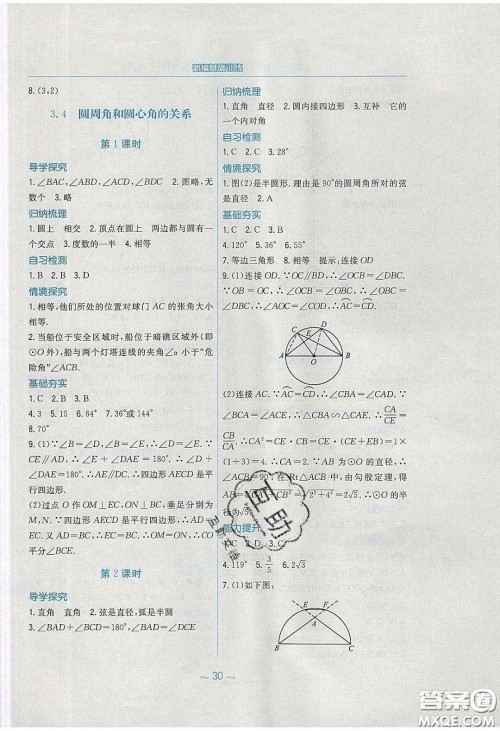 新编基础训练
8.(3,2)
3.4 圆周角和圆心角的关系
第1课时
导学探究
1.∠BAC,∠ABD,∠ACD,∠BDC 2.图略,无
数个 3.略
归纳梳理
1.圆上 相交 2.顶点在圆上 两边都与圆有一
个交点 3.度数的一半 4.相等
自习检测
1.B 2.B 3.D
情境探究
1.相等,他们所处的位置对球门AC的张角大小
相等.
2.当船位于安全区域时,船位于暗礁区域外(即
⊙O外),船与两个灯塔连线的夹角∠α小于“危
险角”∠ACB.
基础夯实
1.C 2.C 3.B
4.3 5.15 6.64° 7.36°或144°
8.70°
9.(1)∵∠B=∠D,∠B=∠E,∴∠D=∠E.∵CE
∥AD,∴∠E+∠DAE=180°.∴∠D+
∠DAE=180°.∴AE∥DC.∴四边形AECD是平
行四边形.
(2)过点O作OM⊥EC,ON⊥BC,垂足分别为
M,N.∵四边形AECD是平
∴CE=BC.∴OM=ON,
∴CO平分∠BCE.
第2课时
导学探究
1.直角 直角 2.弦是直径,弧是半圆
3.∠BAD+∠BCD=180°,∠BAD=∠DCE
归纳梳理
1.直角 直径 2.圆内接四边形 3.互补 它的
一个内对角
自习检测
1.C 2.C 3.28°
情境探究
1.图(2)是半圆形.理由是90°的圆周角所对的弦
是直径 2.A
基础夯实
1.C 2.B 3.C
4.120° 5.90° 6.55°
7.等边三角形 8.相等 提示:连接OD
9.(1)连接OD.∵OC∥BD,∴∠OCB=∠DBC.
∵OB=OC,∴∠OBC=∠OCB.∴∠OBC=
∠DBC.∴∠AOC=∠COD.∴AC=CD
C E D A O B
(2)连接AC.∵AC=CD,∴∠CBA=∠CAD.
∵∠BCA=∠ACE,∴△CBA∽△CAE.∴CA/CE=
CB/CA.∴CA²=CE·CB=CE·(CE+EB)=1×
(1+3)=4.∴CA=2.∵AB为⊙O的直径,
∴∠ACB=90°.在Rt△ACB中,由勾股定理,得
的半径为√5.
能力提升
4.119° 5.3/5 6.2√3
7.(1)如下图:
E F A B C
互助
～30～
答案圈
MXQE.COM